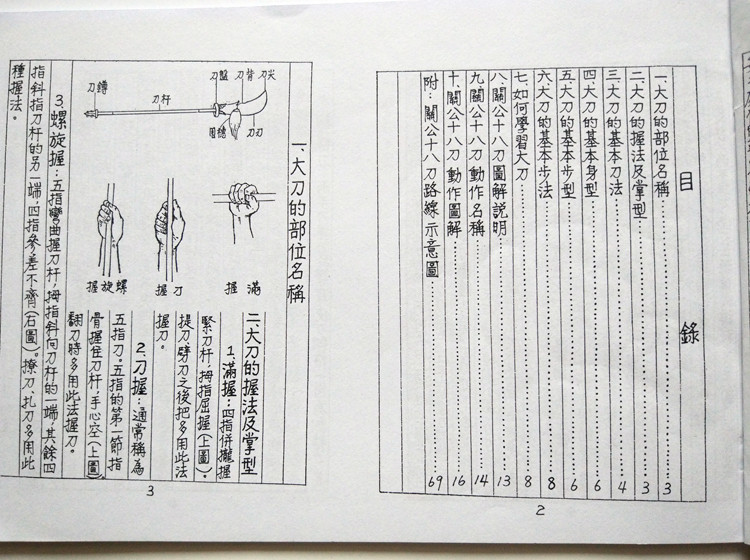 目 錄
一、大刀的部位名稱……3
二、大刀的握法及掌型……3
三、大刀的基本刀法……4
四、大刀的基本身型……6
五、大刀的基本步型……6
六、大刀的基本步法……8
七、如何學習大刀……8
八、關公十八刀圖解說明……13
九、關公十八刀動作名稱……14
十、關公十八刀動作圖解……16
附：關公十八刀路線示意圖……69
2
一、大刀的部位名稱
刀鐏
刀杆
刀盤
刀背
刀尖
刀刃
滿握
刀握
螺旋握
二、大刀的握法及掌型
1、滿握：四指併攏握
緊刀杆，拇指屈握(上圖)。
提刀劈刀之後把多用此法
握刀。
2、刀握：通常稱為
五指刀。五指的第一節指
骨握住刀杆，手心空(上圖)
翻刀時多用此法握刀。
3、螺旋握：五指彎曲握刀杆，拇指斜向刀杆的一端，其餘四
指斜指刀杆的另一端，四指參差不齊(右圖)。撩刀、扎刀多用此
種握法。
3